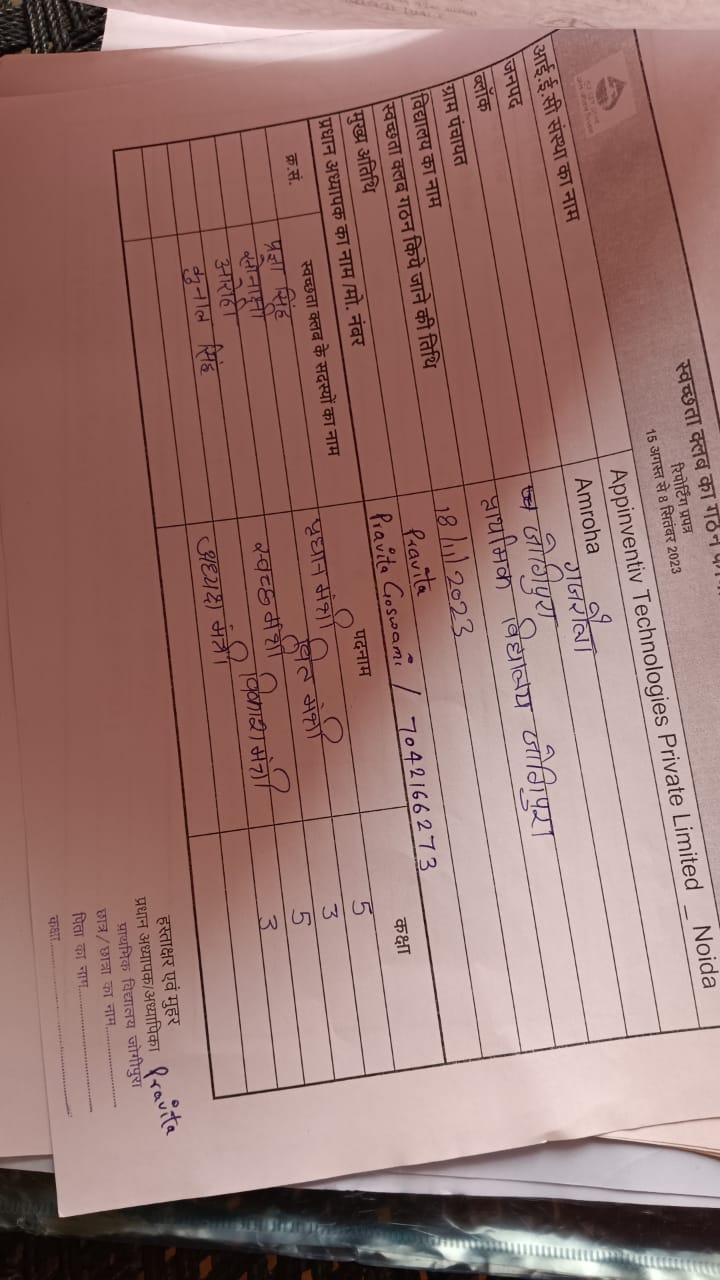 स्वच्छता क्लब का गठन
रिपोर्टिंग प्रपत्र
15 अगस्त से 8 सितंबर 2023
आई.ई.सी संस्था का नाम Appinventiv Technologies Private Limited _ Noida
जनपद Amroha
ब्लॉक गजरौला
ग्राम पंचायत जोगीपुरा
विद्यालय का नाम प्राथमिक विद्यालय जोगीपुरा
स्वच्छता क्लब गठन किये जाने की तिथि 18/11/2023
मुख्य अतिथि Pravita
प्रधान अध्यापक का नाम/मो. नंबर Pravita Goswami / 7042166273
क्र.सं. स्वच्छता क्लब के सदस्यों का नाम पदनाम कक्षा
सिंह प्रधान मंत्री 5
सोनाक्षी मंत्री 3
आरोही स्वच्छ मंत्री 5
सिंह मंत्री 3
मंत्री
हस्ताक्षर एवं मुहर
प्रधान अध्यापक/अध्यापिका Pravita
प्राथमिक विद्यालय जोगीपुरा
छात्र/छात्रा का नाम
पिता का नाम
कक्षा